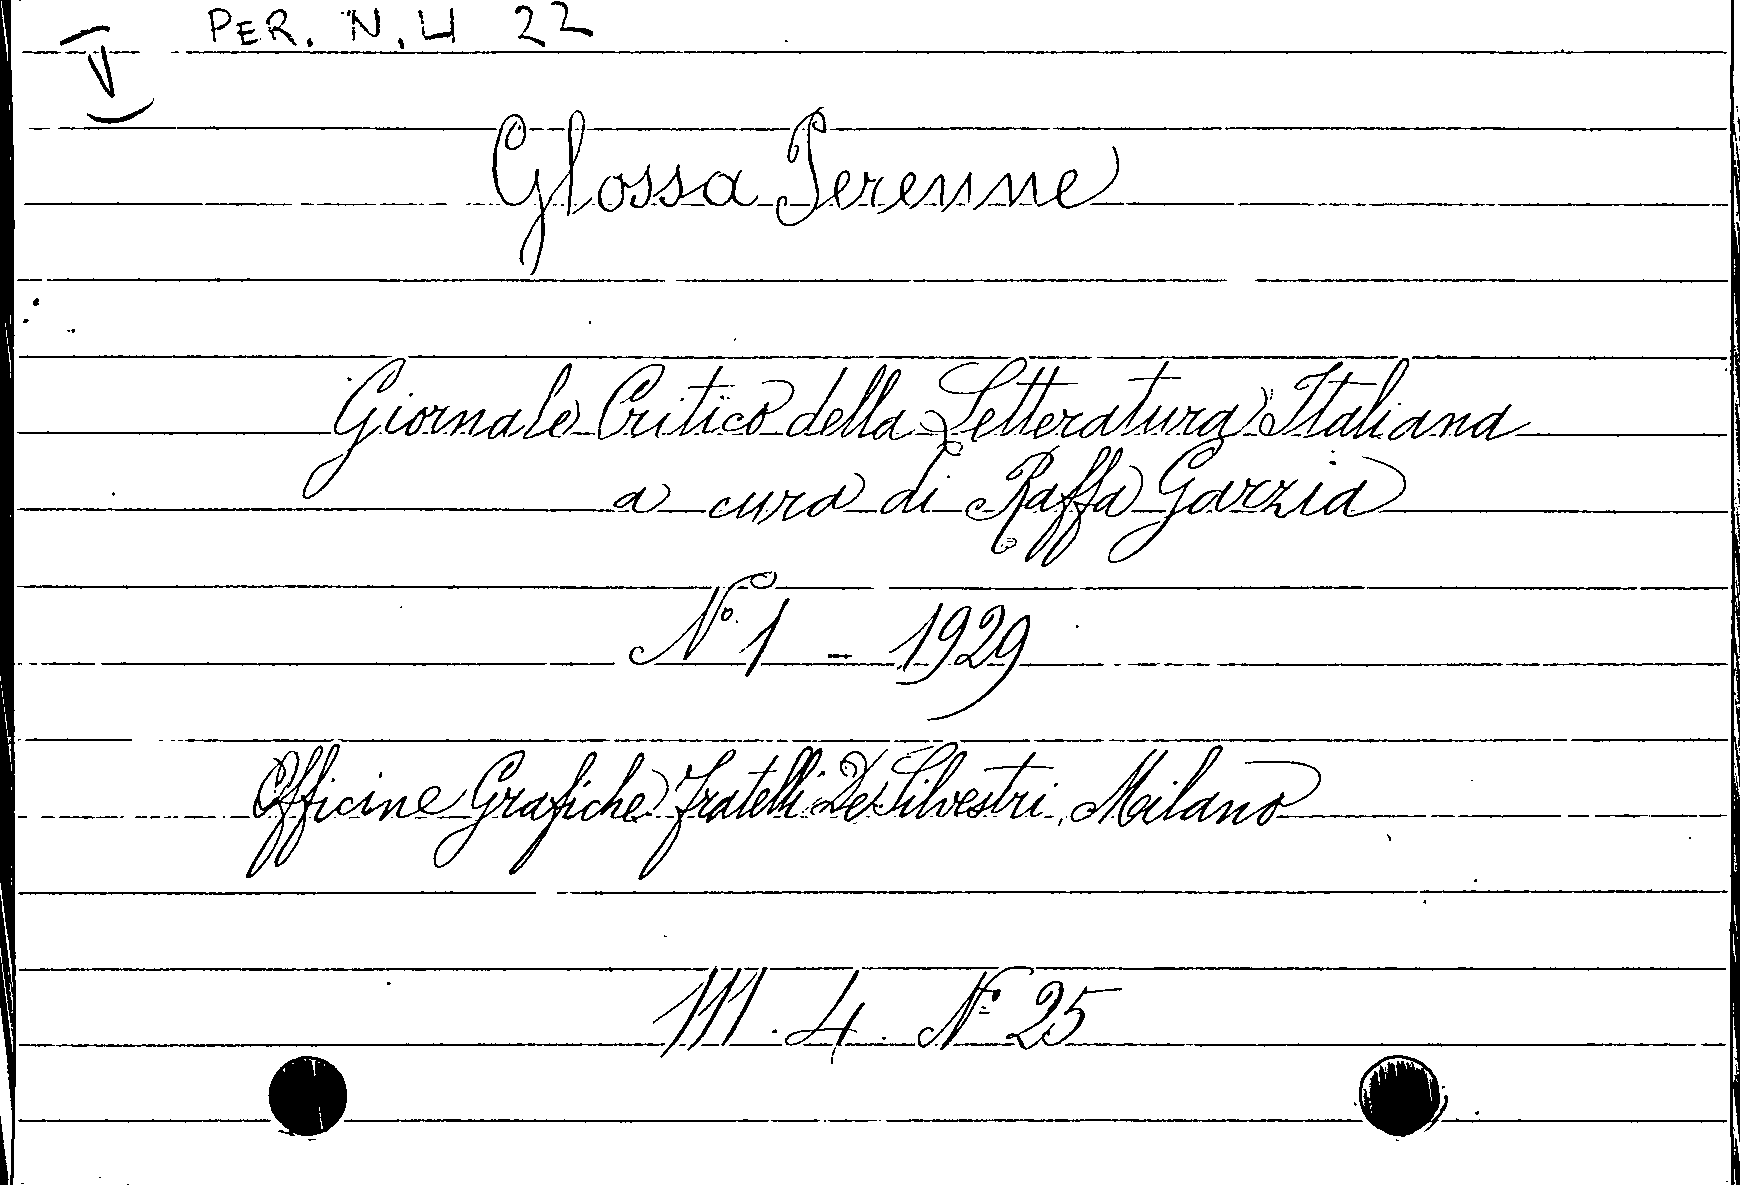 PER. N. 4 22
V
Glossa Perenne
Giornale Critico della Letteratura Italiana
a cura di Raffa Garzia
N.° 1 - 1929
Officine Grafiche Fratelli De Silvestri, Milano
111. 4. N° 25